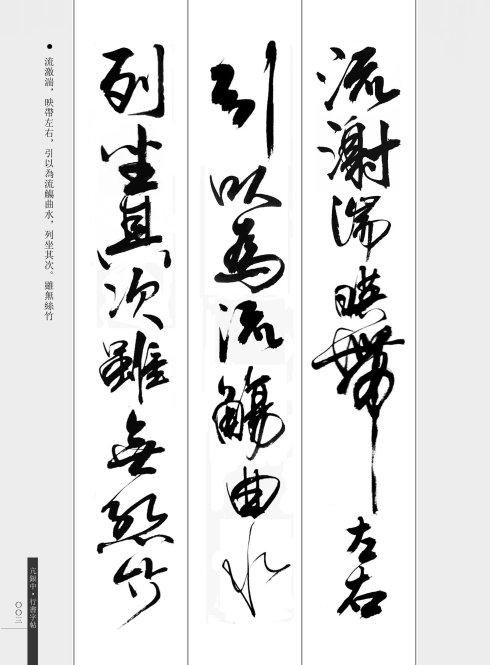 流激湍暎帶左右
引以為流觴曲水
列坐其次雖無絲竹
● 流激湍，映帶左右，引以為流觴曲水，列坐其次。雖無絲竹
亢銀中・行書字帖
〇〇三